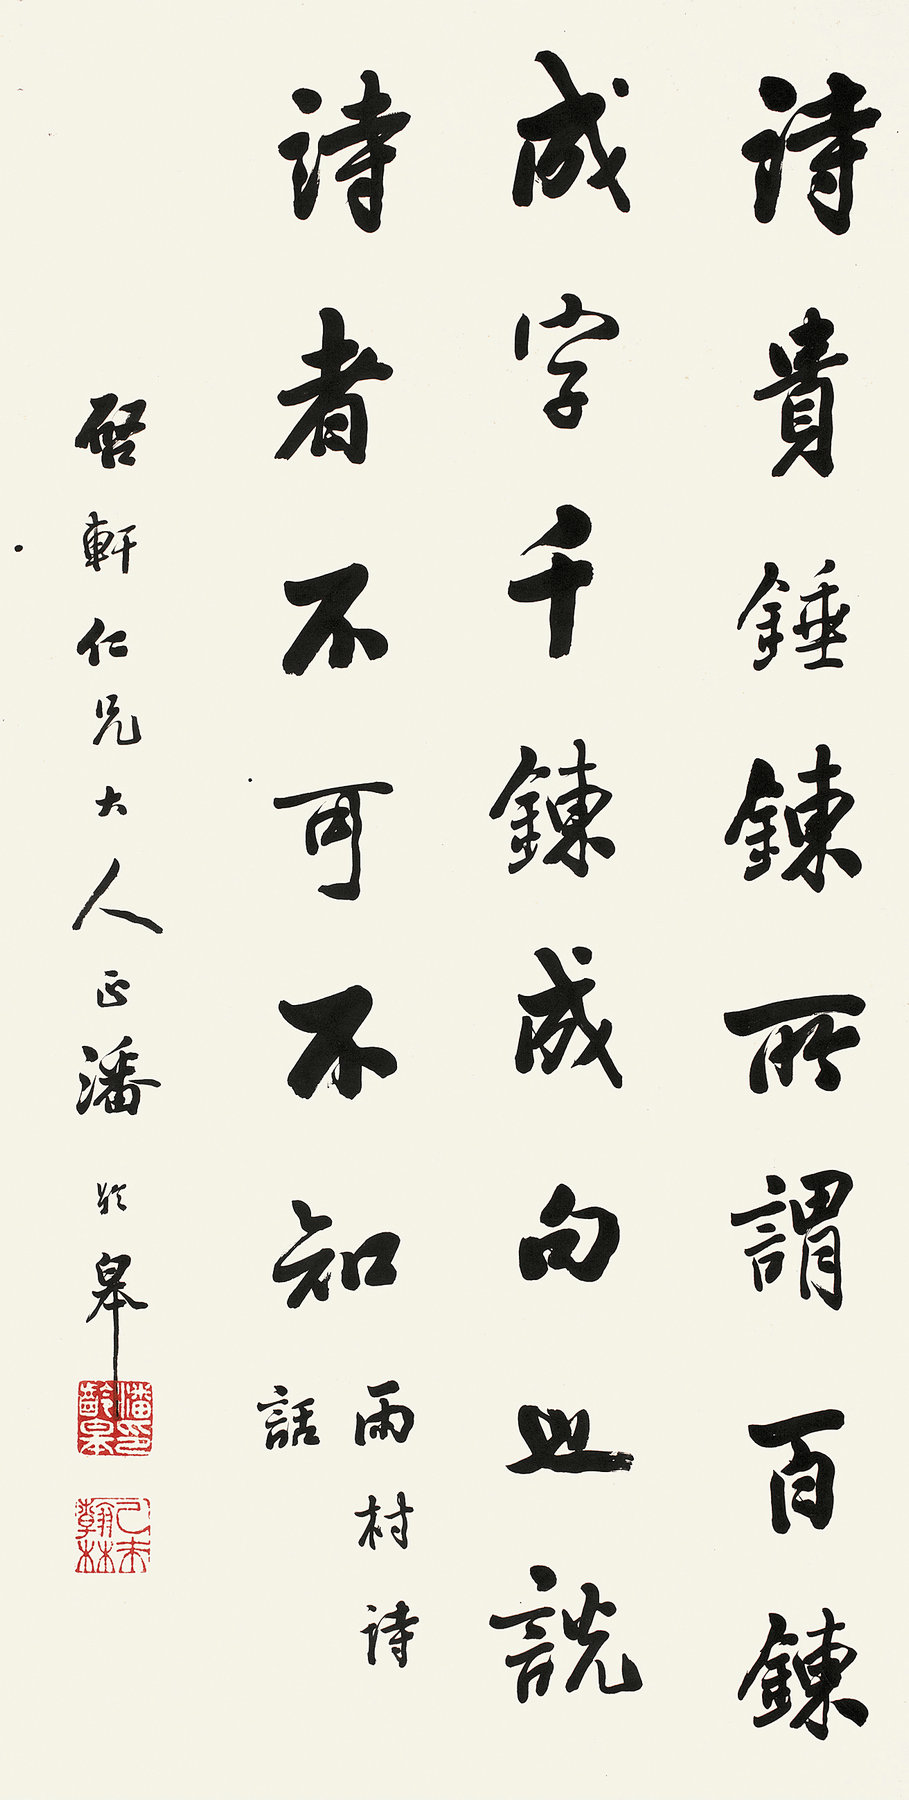 詩貴錘鍊所謂百鍊
成字千鍊成句也說
詩者不可不知
雨村詩
話
啓軒仁兄大人正潘齡皋
潘印齡皋
乙未翰林